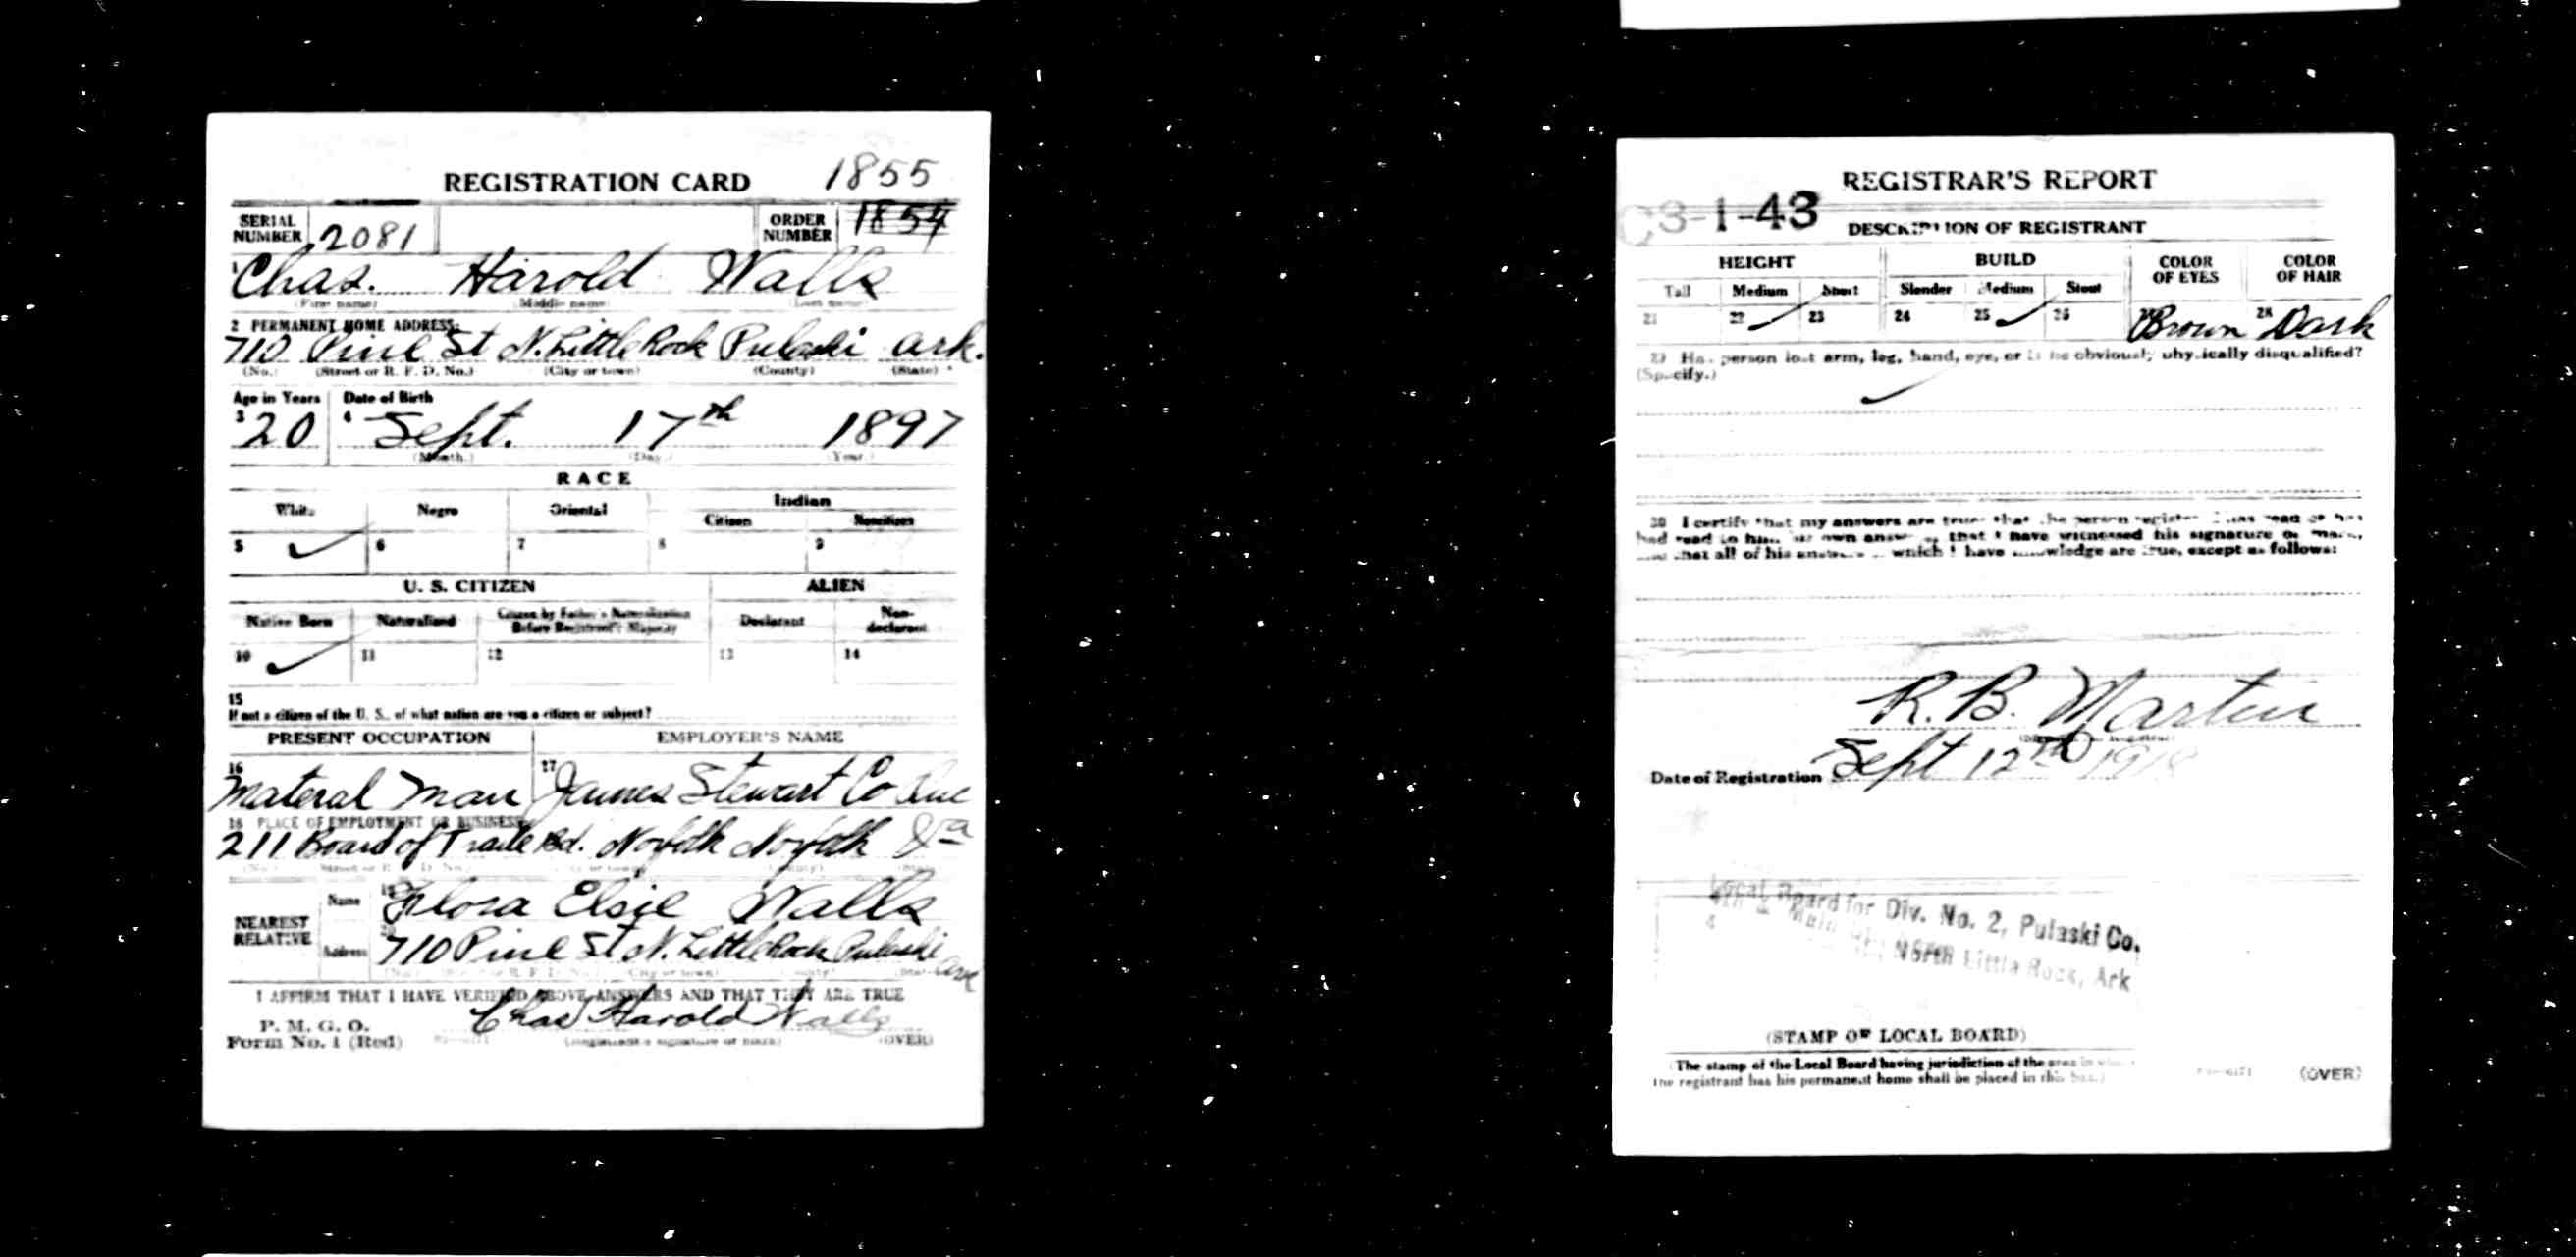 REGISTRATION CARD 1855
SERIAL NUMBER 2081 ORDER NUMBER 1854
1 Chas. Harold Walls
(First name) (Middle name) (Last name)
2 PERMANENT HOME ADDRESS:
710 Pine St N. Little Rock Pulaski Ark.
(No.) (Street or R. F. D. No.) (City or town) (County) (State)
Age in Years Date of Birth
3 20 4 Sept. 17th 1897
(Month.) (Day.) (Year.)
RACE
White Negro Oriental Indian
Citizen Noncitizen
5 6 7 8 9
U. S. CITIZEN ALIEN
Native Born Naturalized Citizen by Father's Naturalization Before Registrant's Majority Declarant Non-declarant
10 11 12 13 14
15
If not a citizen of the U. S., of what nation are you a citizen or subject?
PRESENT OCCUPATION EMPLOYER'S NAME
16 Materal Man 17 James Stewart Co Inc
18 PLACE OF EMPLOYMENT OR BUSINESS:
211 Board of Trade Bd. Norfolk Norfolk Va
NEAREST RELATIVE Name 19 Flora Elsie Walls
Address 20 710 Pine St N. Little Rock Pulaski Ark
I AFFIRM THAT I HAVE VERIFIED ABOVE ANSWERS AND THAT THEY ARE TRUE
P. M. G. O.
Form No. 1 (Red) Chas Harold Walls
(Registrant's signature or mark) (OVER)
REGISTRAR'S REPORT
C3-1-43
DESCRIPTION OF REGISTRANT
HEIGHT BUILD COLOR OF EYES COLOR OF HAIR
Tall Medium Short Slender Medium Stout
21 22 23 24 25 26 27 Brown 28 Dark
29 Has person lost arm, leg, hand, eye, or is he obviously physically disqualified?
(Specify.)
30 I certify that my answers are true; that the person registered has read or has
had read to him his own answers; that I have witnessed his signature or mark,
and that all of his answers of which I have knowledge are true, except as follows:
R. B. Martin
Date of Registration Sept 12th 1918
Local Board for Div. No. 2, Pulaski Co.
4th & Main
North Little Rock, Ark
(STAMP OF LOCAL BOARD)
(The stamp of the Local Board having jurisdiction of the area in which
the registrant has his permanent home shall be placed in this box.)
(OVER)